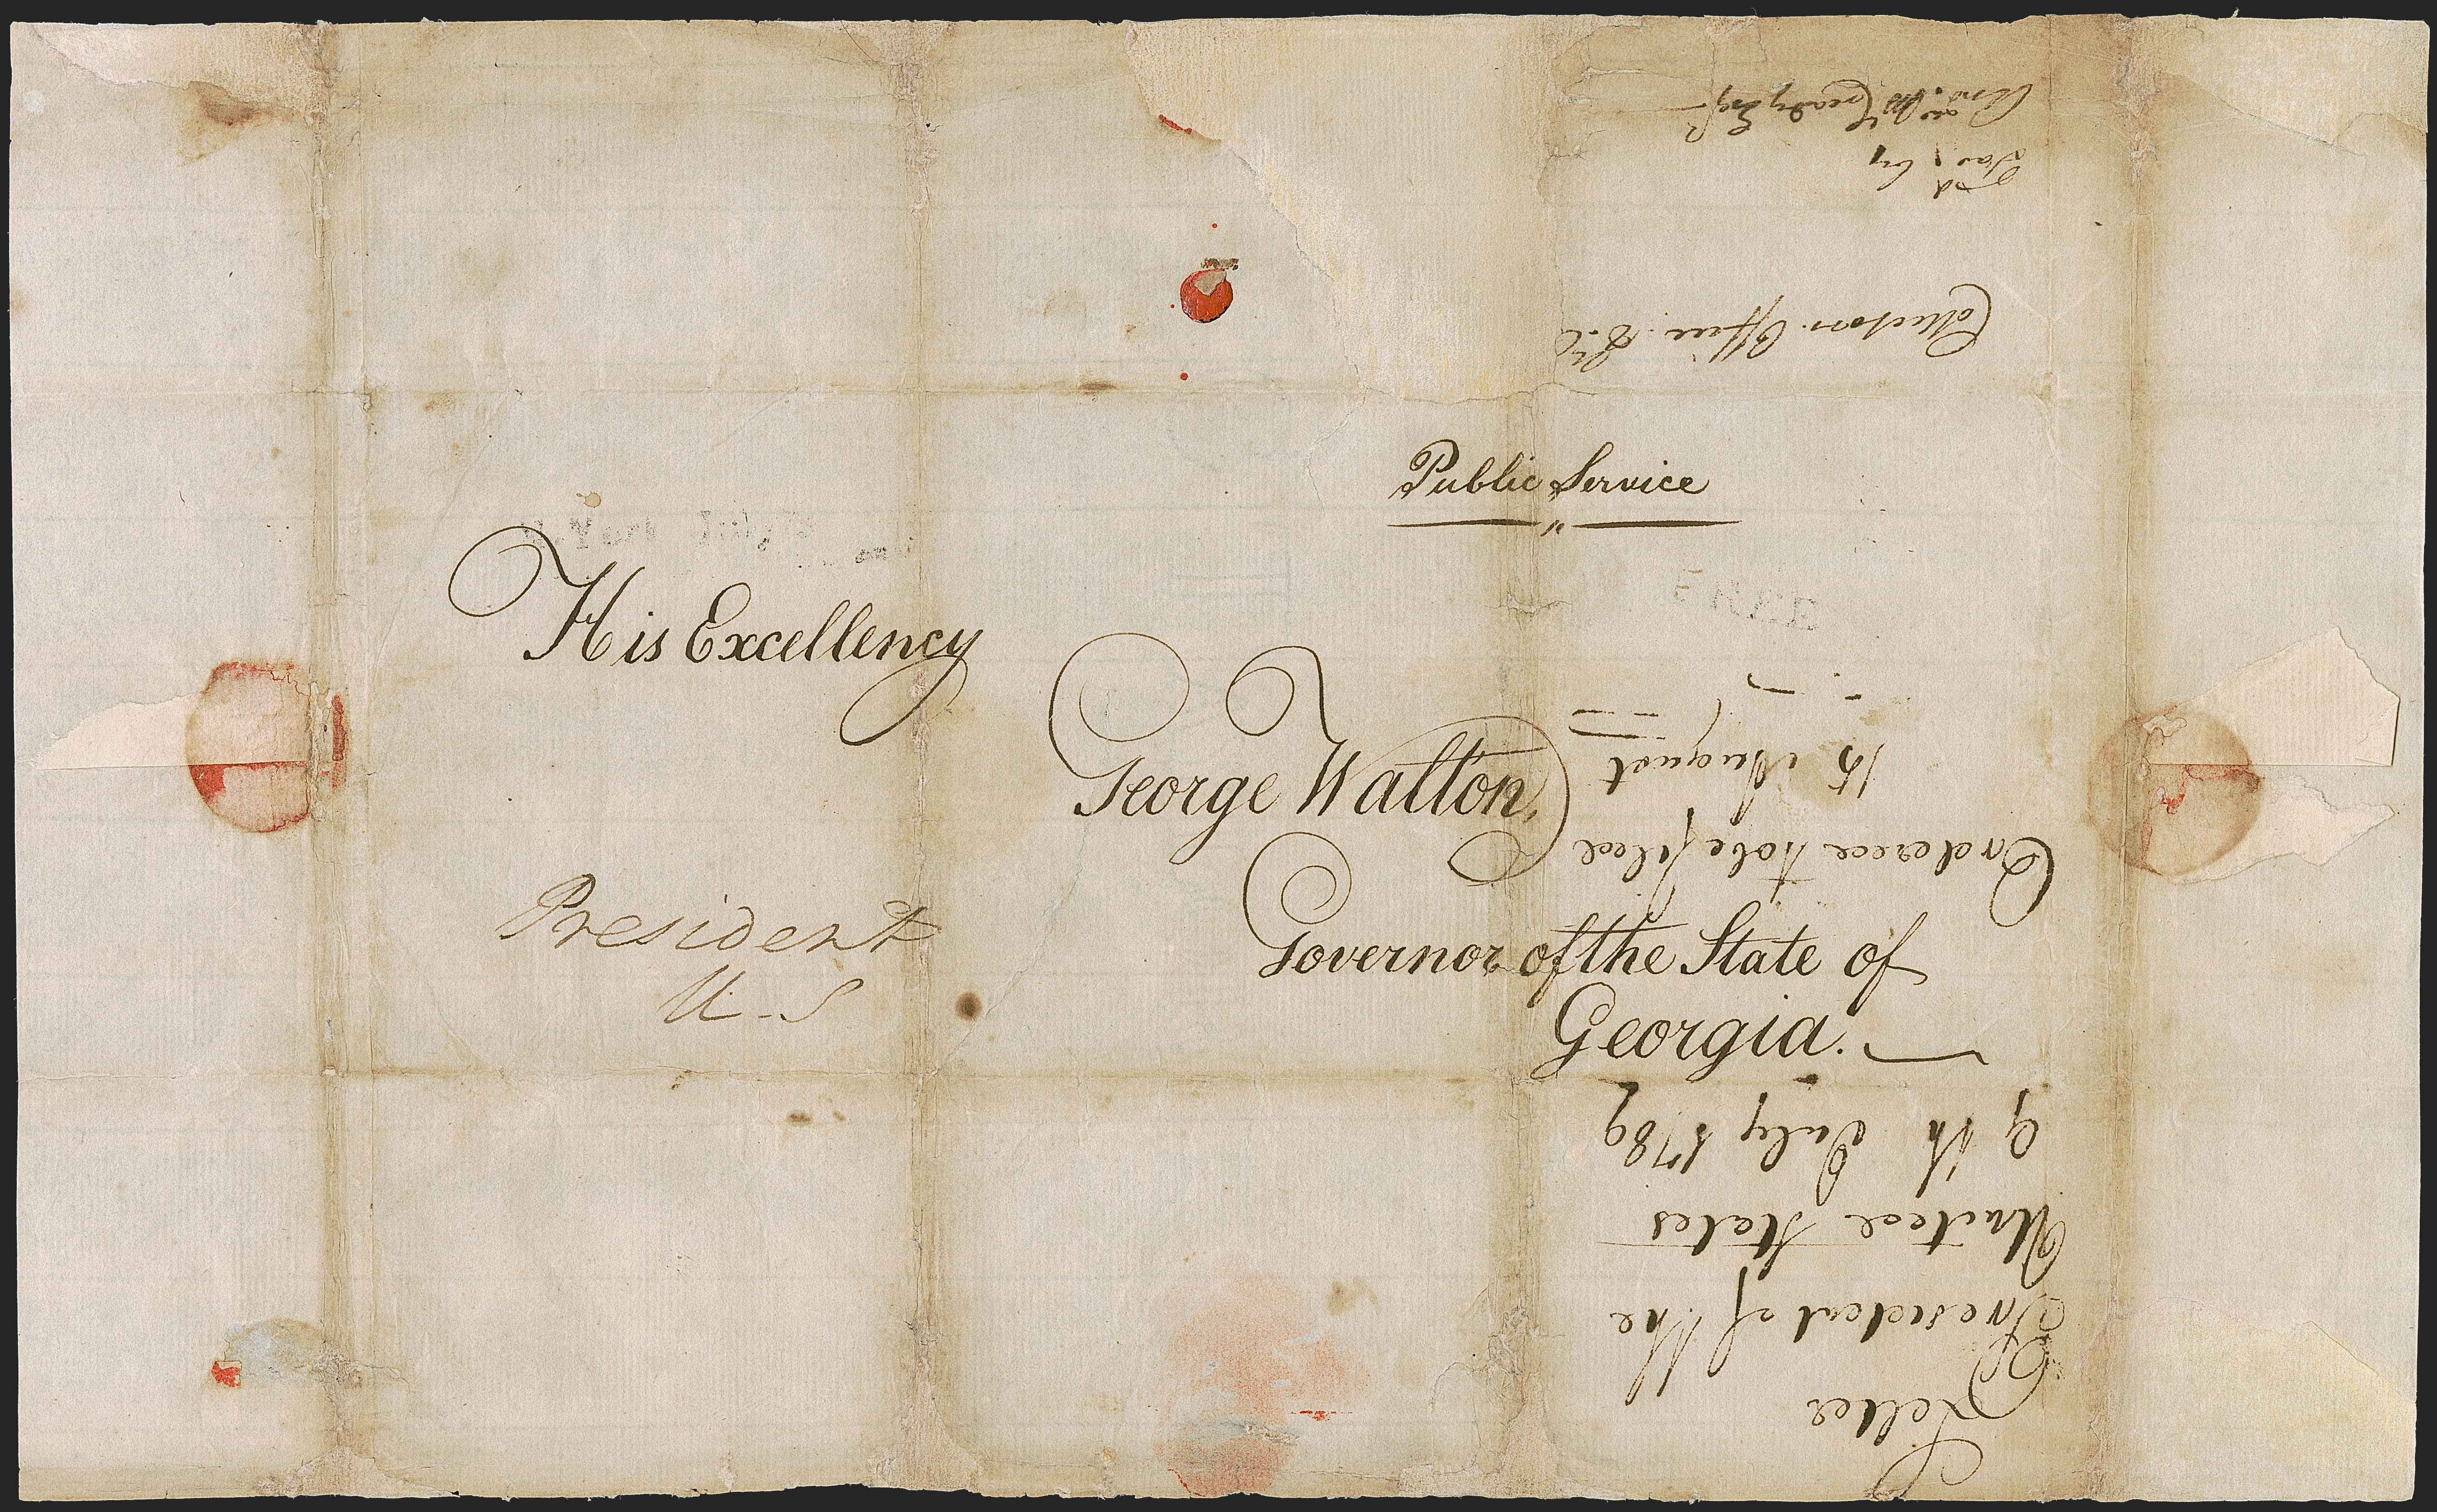 Public Service
His Excellency
George Walton,
Governor of the State of
Georgia.
President
U. S
FREE
N. York July
Letter
President of the
United States
9th July 1789
Ordered to be filed
15 August
Collectors Office
by